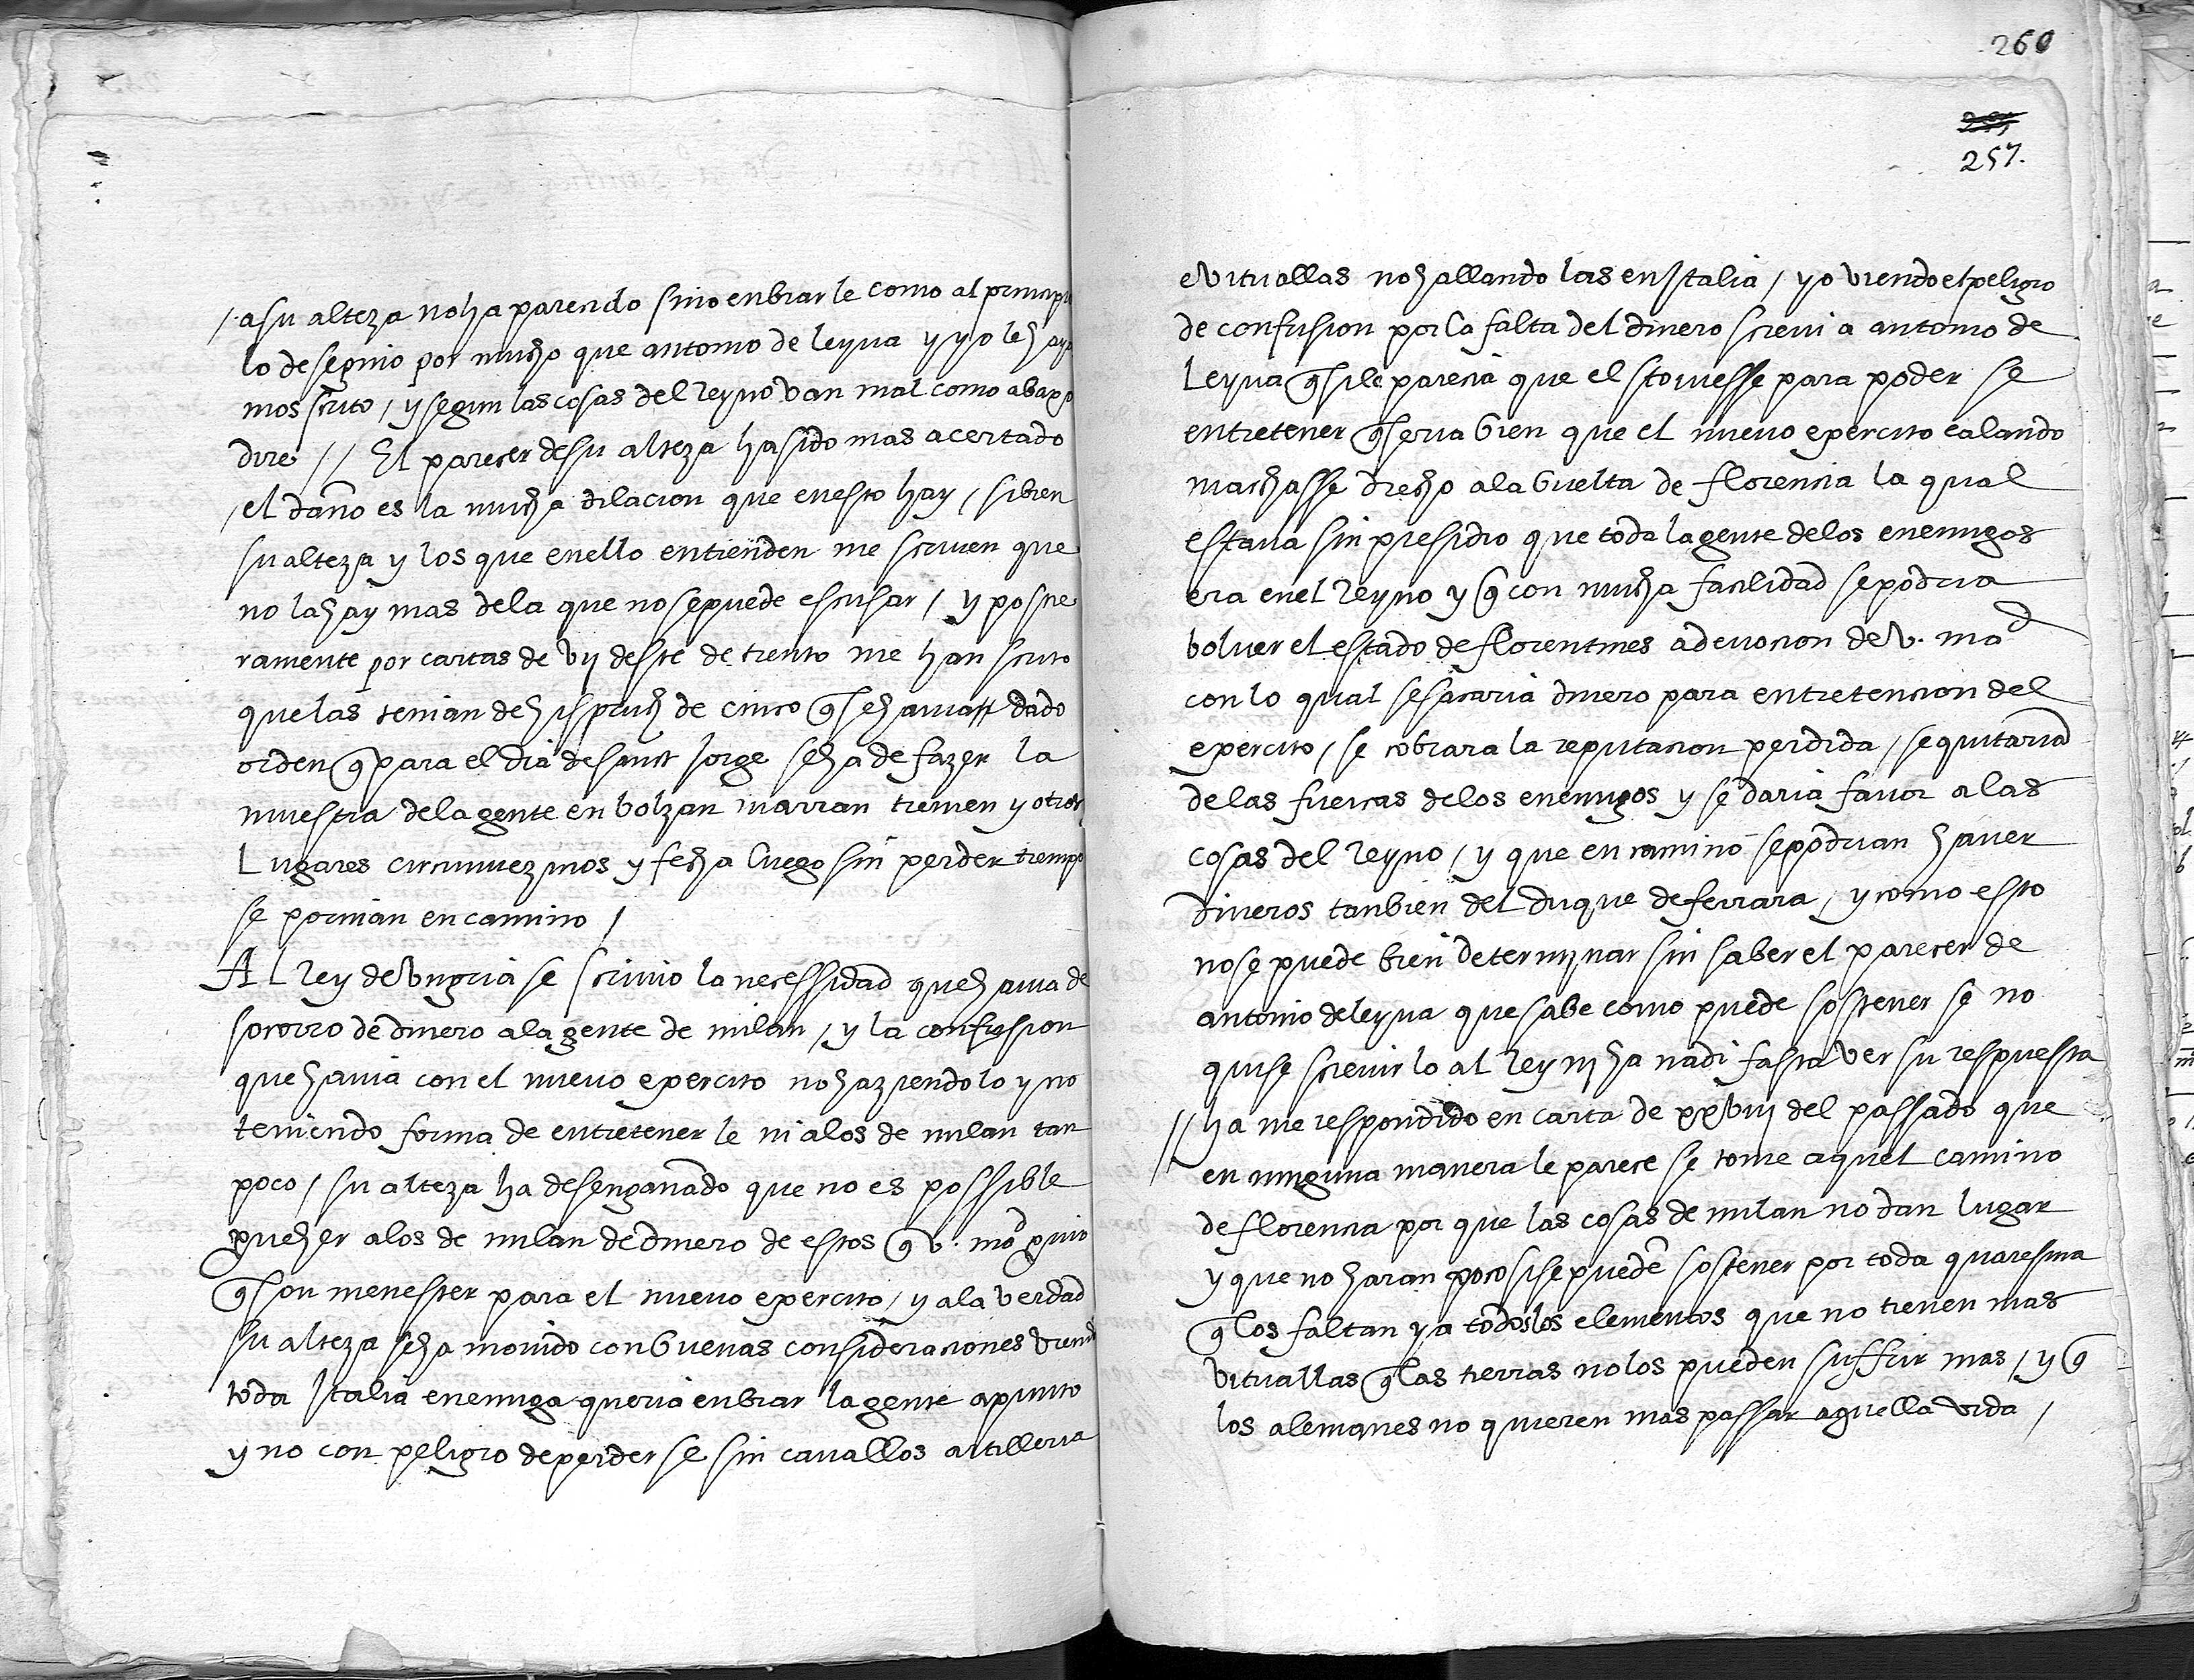 / a su alteza no ha parecido sino enbiar le como al principio
lo desegnio por mucho que antonio de leyua y yo le haya
mos scrito / y segun las cosas del reyno van mal como abaxo
dire // El parecer de su alteza ha sido mas acertado
/ el daño es la mucha dilacion que en esto hay / si bien
su alteza y los que en ello entienden me scriuen que
no la hay mas de la que no se puede escusar / y postre
ramente por cartas de vij deste de trento me han scrito
que las tenian de hispruch de cinco q̃ se hauia dado
orden q̃ para el dia de sanct Jorge se ha de fazer la
muestra de la gente en bolzan marran tremen y otros
Lugares circunuezinos y fecha luego sin perder tiempo
se pornian en camino /
Al rey de vngria se scriuio la necessidad que hauia de
socorro de dinero a la gente de milan / y la confusion
que hauia con el nueuo exercito no haziendo lo y no
teniendo forma de entretener le ni a los de milan tan
poco / su alteza ha desengañado que no es possible
prueher a los de milan de dinero de estos q̃ v. md
q̃ son menester para el nueuo exercito / y a la verdad
su alteza se ha mouido con buenas consideraciones viendo
toda Italia enemiga queria enbiar la gente a punto
y no con peligro de perder se sin cauallos artilleria
260
257.
e vituallas no hallando las en Italia / yo viendo el peligro
de confusion por la falta del dinero screui a antonio de
Leyua q̃ si le parecia que el stouiesse para poder se
entretener q̃ seria bien que el nueuo exercito calando
marchasse drecho a la buelta de florencia la qual
estaua sin presidio que toda la gente de los enemigos
era en el reyno y q̃ con mucha facilidad se podria
boluer el estado de florentines a deuocion de v. mad
con lo qual se sacaria dinero para entretencion del
exercito / se cobrara la reputacion perdida / se quitaria
de las fuercas de los enemigos y se daria fauor a las
cosas del reyno / y que en camino se podrian hauer
dineros tanbien del duque de ferrara / y como esto
no se puede bien determynar sin saber el parecer de
antonio de leyua que sabe como puede sostener se no
quise screuir lo al rey nj ha nadi fasta ver su respuesta
// ha me respondido en carta de xxviij del passado que
en ninguna manera le parece se tome aquel camino
de florencia por que las cosas de milan no dan lugar
y que no haran poco si se puede sostener por toda quaresma
q̃ los faltan ya todos los elementos que no tienen mas
vituallas q̃ las tierras no los pueden suffrir mas / y q̃
los alemanes no quieren mas passar aquella vida /